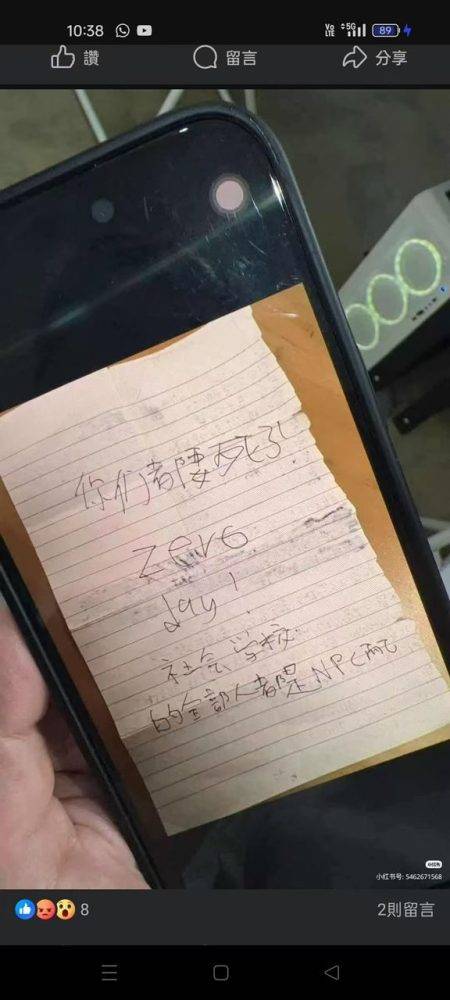 10:38
Vo LTE
5G
89
讚
留言
分享
你们都要死了!
zero
day!
社会学校
的全部人都是NPC而已
小红书
小红书号: 5462671568
8
2則留言